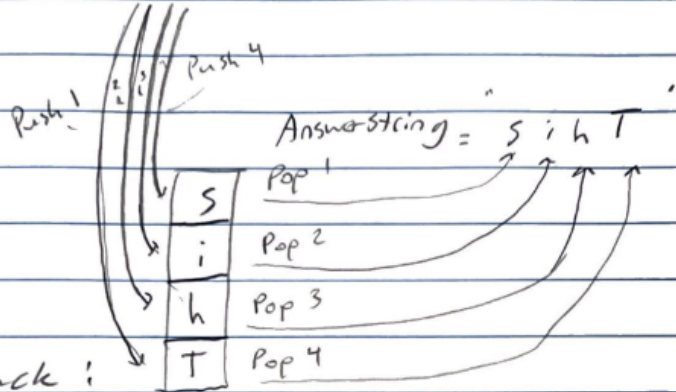 Push 4
Push 1
AnswerString = " s i h T "
S Pop 1
i Pop 2
h Pop 3
T Pop 4
ck :